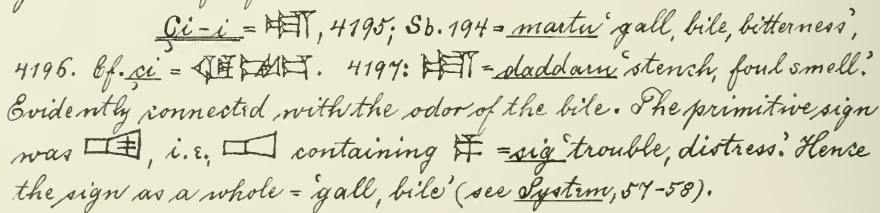 Çi-i = , 4195; Sb. 194 = martu 'gall, bile, bitterness',
4196. Cf. çi = . 4197: = daddaru 'stench, foul smell.'
Evidently connected with the odor of the bile. The primitive sign
was , i.e., containing = sig 'trouble, distress.' Hence
the sign as a whole = 'gall, bile' (see System, 57-58).